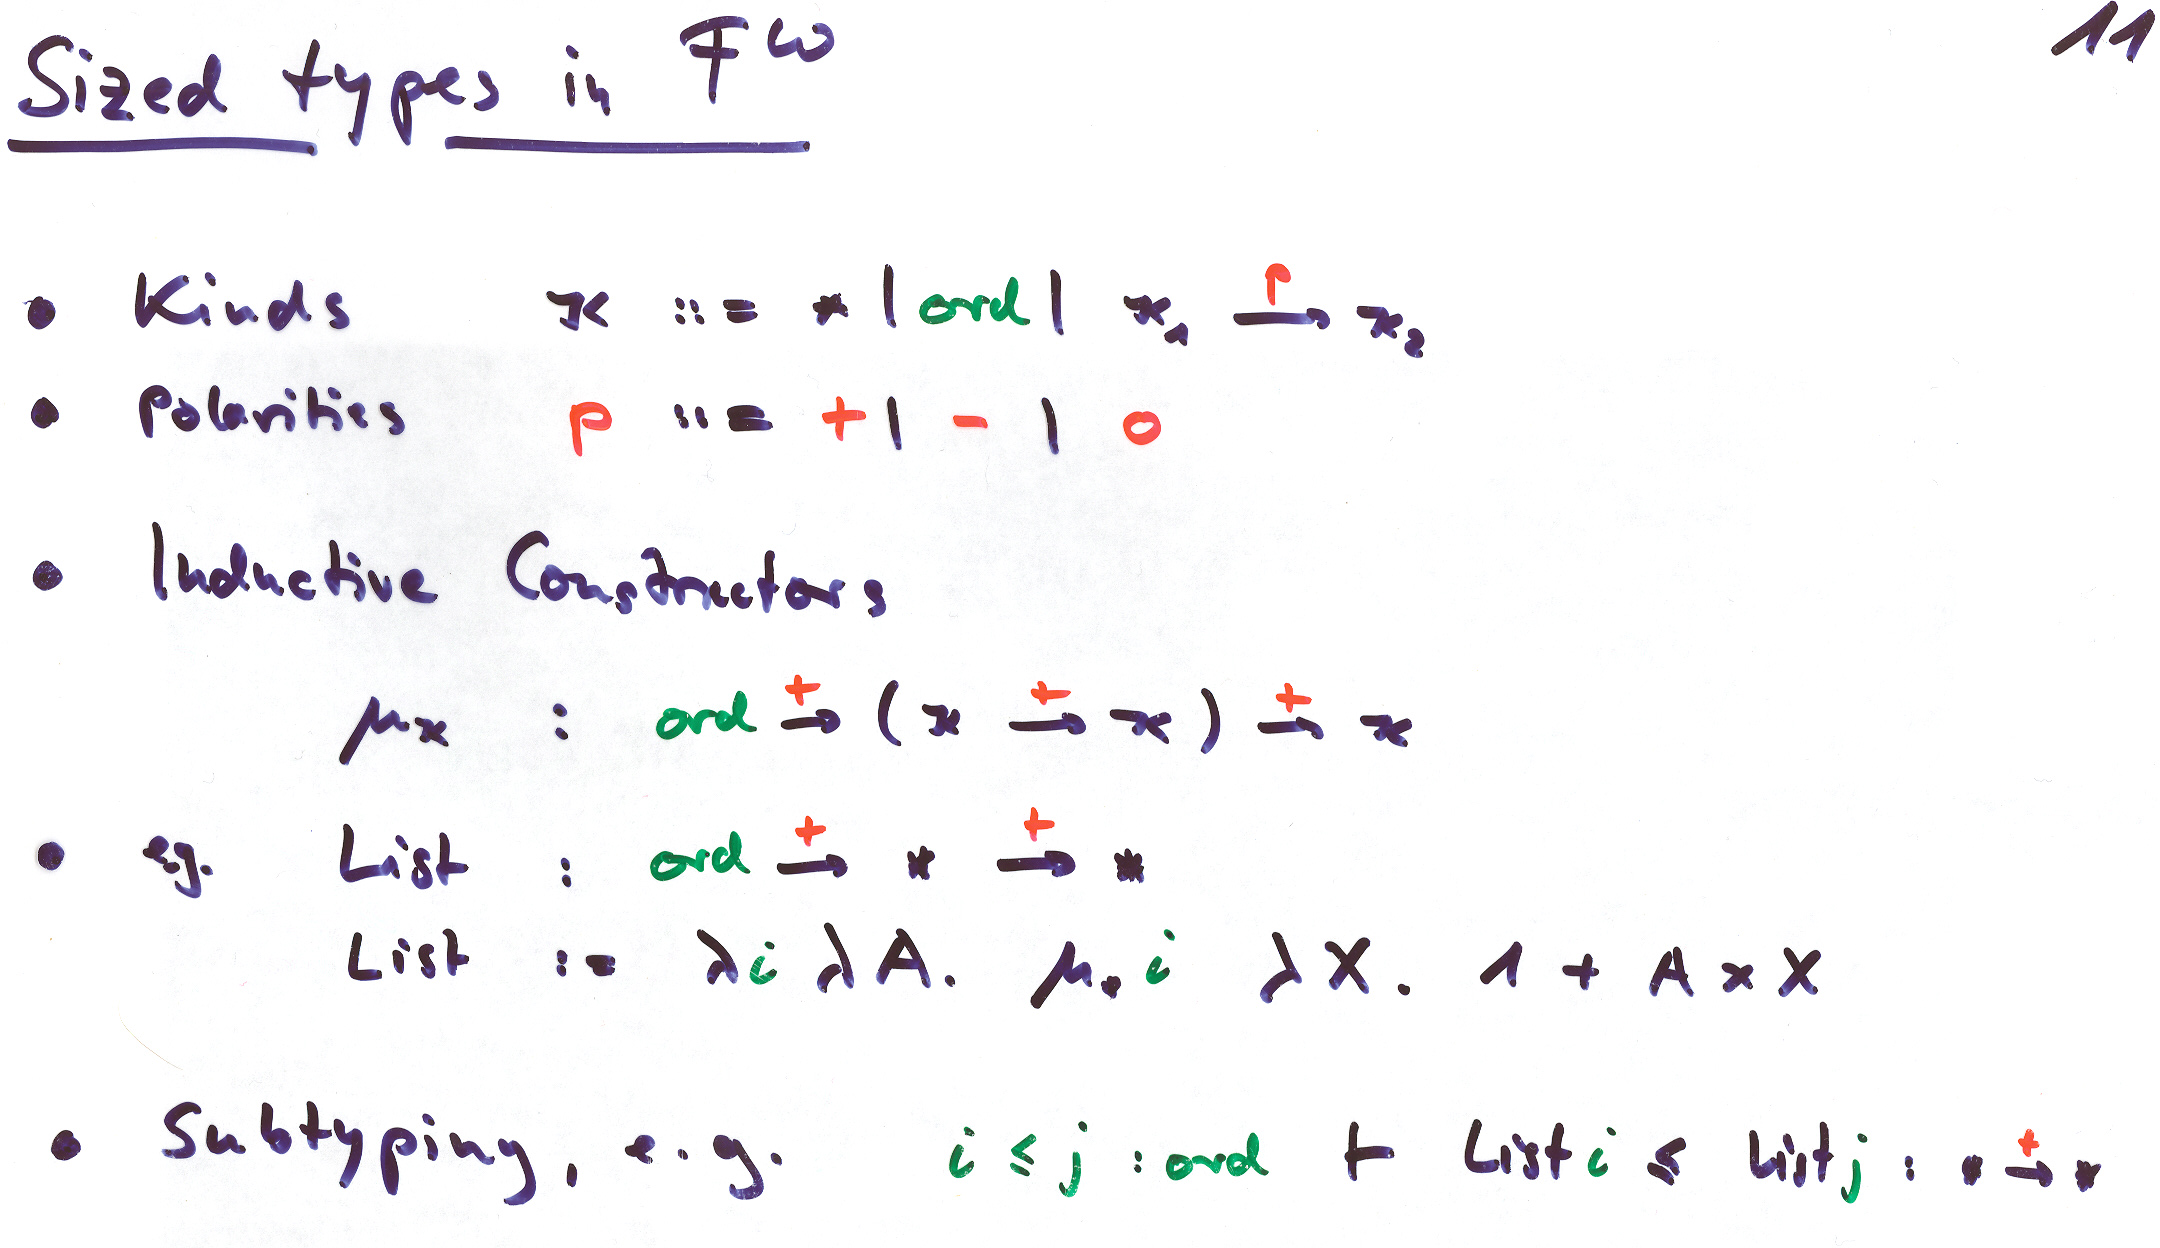 Sized types in F^ω
11
• Kinds ϰ ::= * | ord | ϰ₁ →^p ϰ₂
• Polarities p ::= + | - | o
• Inductive Constructors
μ_ϰ : ord →^+ (ϰ →^+ ϰ) →^+ ϰ
• e.g. List : ord →^+ * →^+ *
List := λi λA. μ_* i λX. 1 + A × X
• Subtyping, e.g. i ≤ j : ord ⊢ List i ≤ List j : * →^+ *